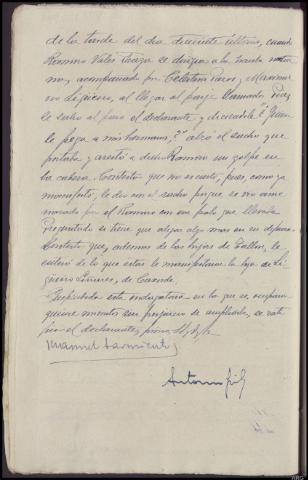 de la tarde del dia diecisiete último, cuando
Ramón Vales se dirigia a la Escuela noctur
na, acompañado por Celestino, Maximino
en Ligüeiro, al llegar al paraje llamado
le salio al paso el declarante, y diciendole "¿Quien
le pega a mis hermanos?" alzó el sacho que
portaba y asestó a dicho Ramón un golpe en
la cabeza. Contesta que no es cierto, pues, como ya
manifestó, le dio con el sacho porque se vio ame
nazado por el Ramón con un palo que llevaba
Preguntado si tiene que alegar algo mas en su defensa.
Contesta que, ademas de los hijos de
enteró de lo que antes le manifestaron la hija de
Linares, de
esta indagatoria en la que se
quince minutos sin perjuicio de ampliarla, se rati
fica el declarante, firma
Manuel Sarmiento
Antonio Gil